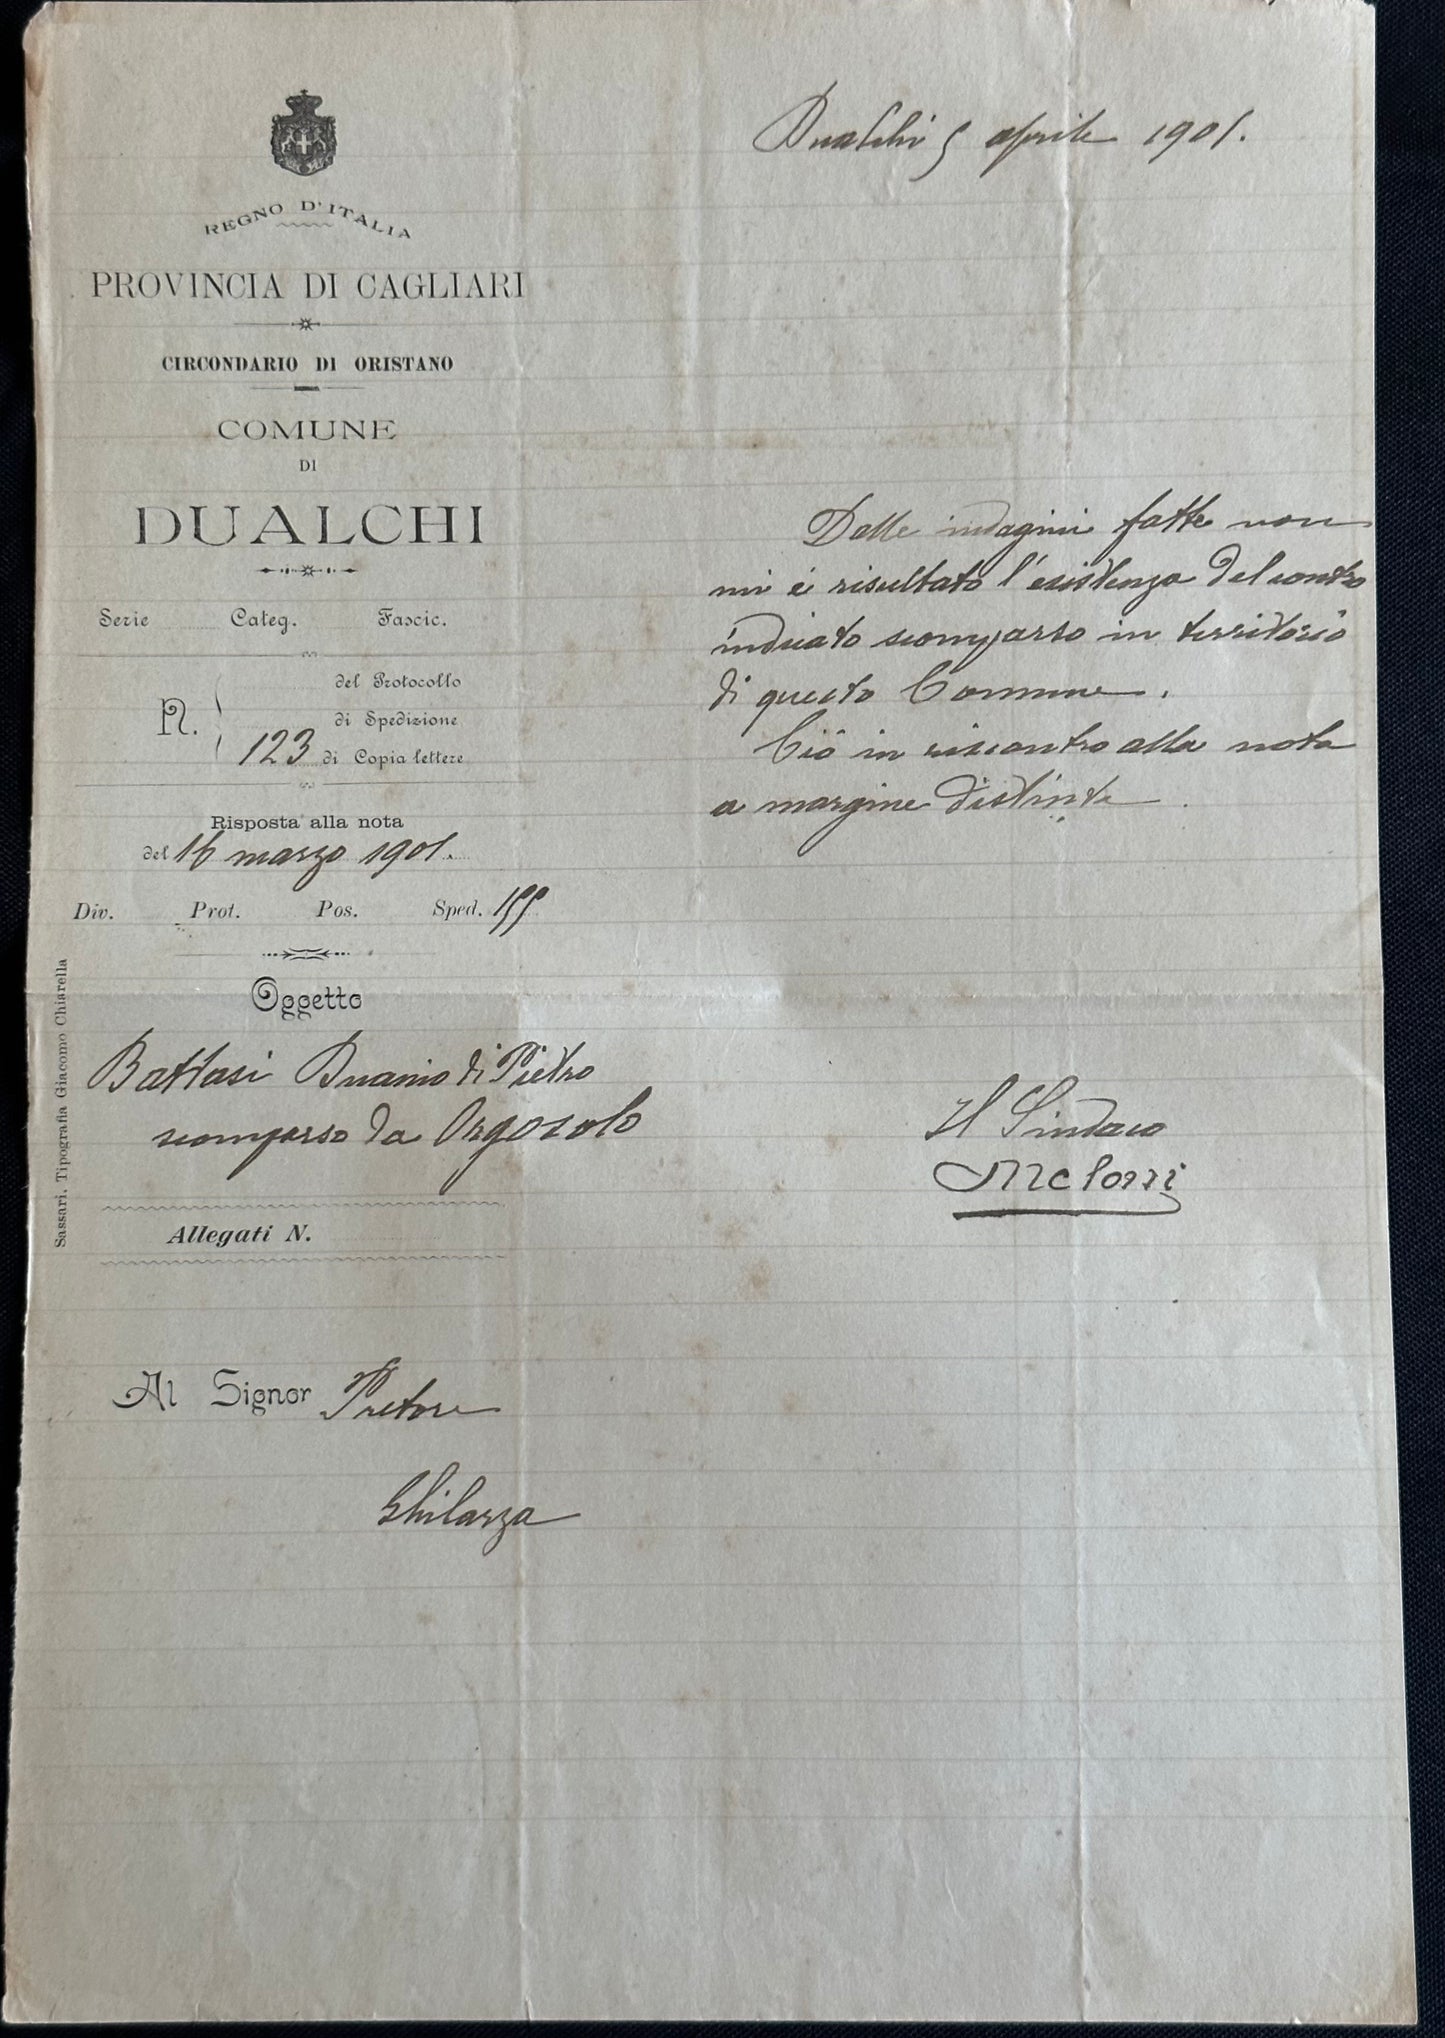 REGNO D'ITALIA
PROVINCIA DI CAGLIARI
CIRCONDARIO DI ORISTANO
COMUNE
DI
DUALCHI
Serie Categ. Fascic.
del Protocollo
N. di Spedizione
123 di Copia lettere
Risposta alla nota
del 16 marzo 1901.
Div. Prot. Pos. Sped. 155
Oggetto
Battasi di Pietro
scomparso da Orgosolo
Allegati N.
Al Signor Pretore
Ghilarza
Sassari. Tipografia Giacomo Chiarella
Dualchi 5 aprile 1901.
Dalle indagini fatte non
mi è risultato l'esistenza del contro
indicato scomparso in territorio
di questo Comune.
Ciò in riscontro alla nota
a margine distinta.
Il Sindaco
Melonni